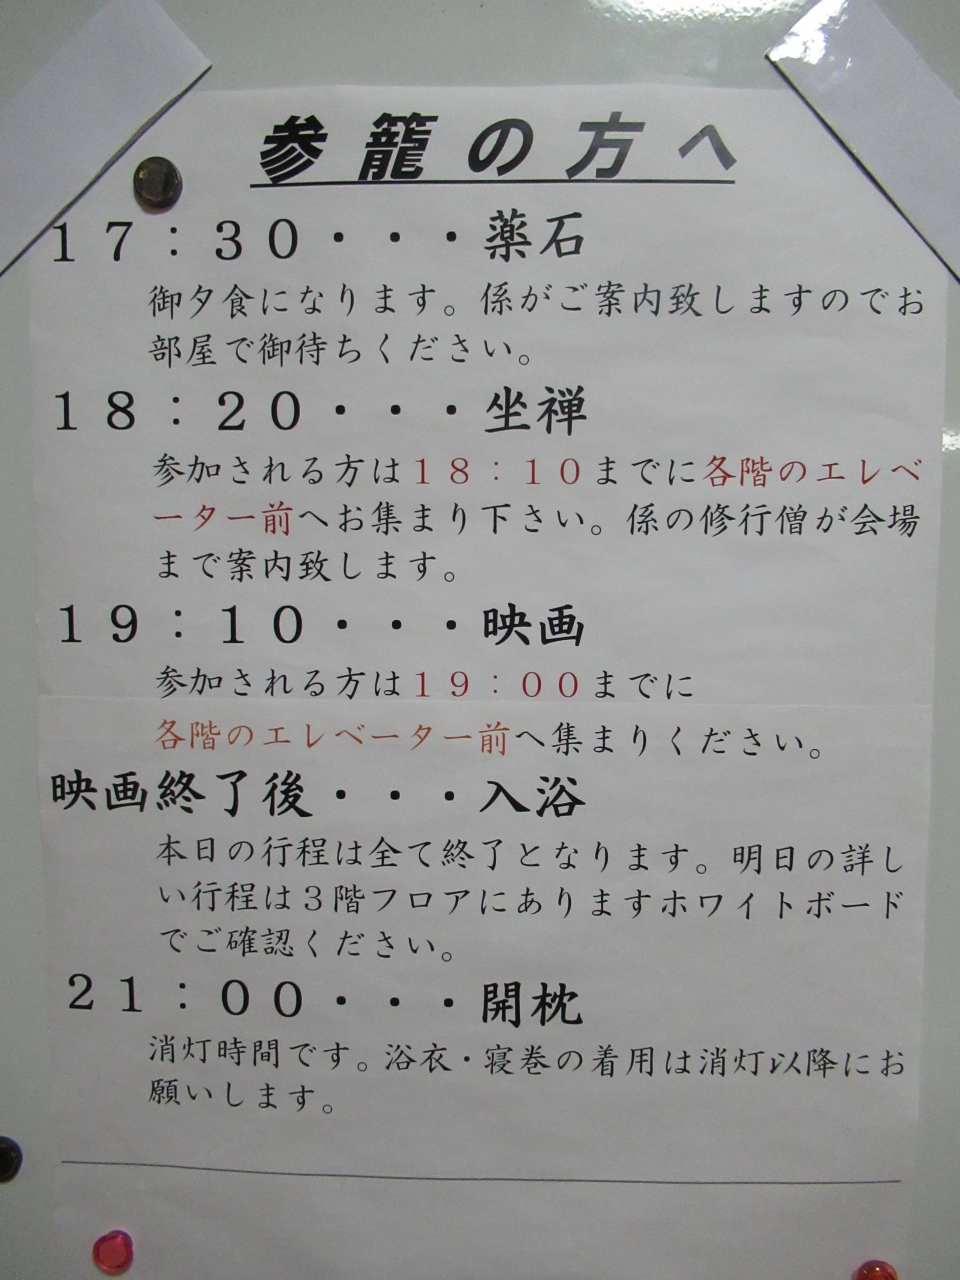 参籠の方へ
17:30・・・薬石
御夕食になります。係がご案内致しますのでお
部屋で御待ちください。
18:20・・・坐禅
参加される方は18:10までに各階のエレベ
ーター前へお集まり下さい。係の修行僧が会場
まで案内致します。
19:10・・・映画
参加される方は19:00までに
各階のエレベーター前へ集まりください。
映画終了後・・・入浴
本日の行程は全て終了となります。明日の詳し
い行程は3階フロアにありますホワイトボード
でご確認ください。
21:00・・・開枕
消灯時間です。浴衣・寝巻の着用は消灯以降にお
願いします。